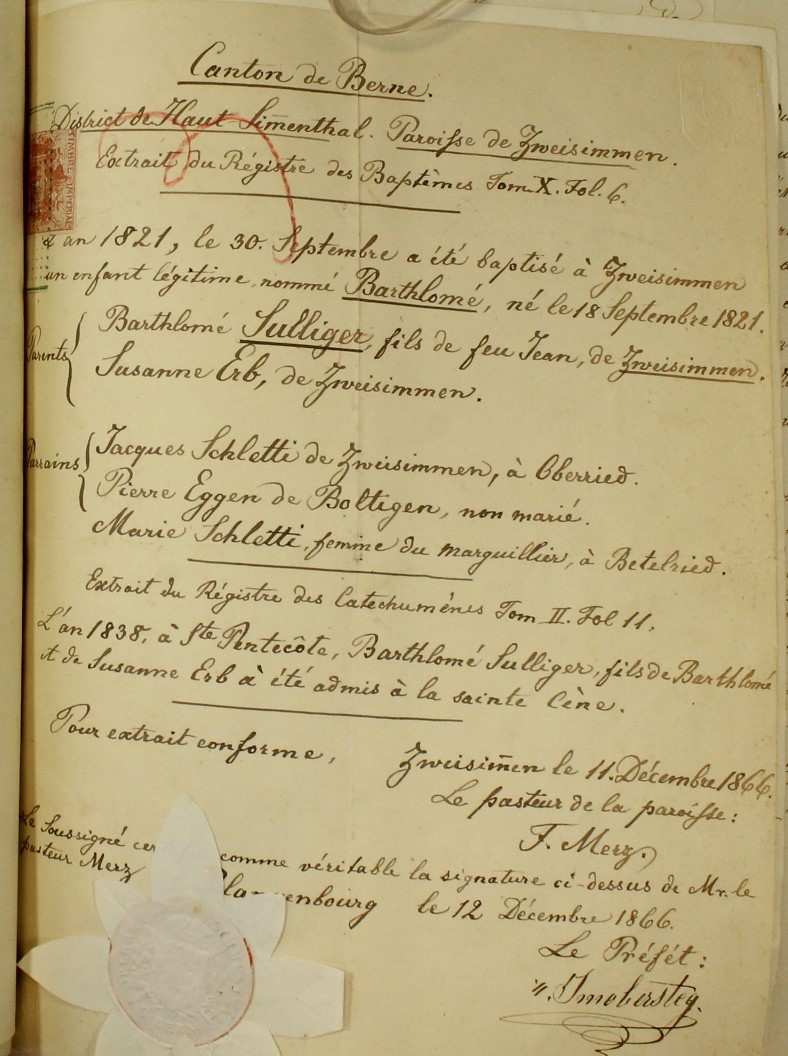 Canton de Berne.
District de Haut Simenthal. Paroisse de Zweisimmen.
Extrait du Régistre des Baptêmes Tom X. Fol. 6.
L'an 1821, le 30. Septembre a été baptisé à Zweisimmen
un enfant légitime, nommé Barthlomé, né le 18 Septembre 1821.
Parents
Barthlomé Sulliger, fils de feu Jean, de Zweisimmen.
Susanne Erb, de Zweisimmen.
Parrains
Jacques Schletti de Zweisimmen, à Oberried.
Pierre Eggen de Boltigen, non marié.
Marie Schletti, femme du marguillier, à Betelried.
Extrait du Régistre des Catechumènes Tom II. Fol 11.
L'an 1838, à Ste Pentecôte, Barthlomé Sulliger, fils de Barthlomé
et de Susanne Erb à été admis à la sainte Cène.
Pour extrait conforme,
Zweisim̅en le 11. Décembre 1866.
Le pasteur de la paroisse:
F. Merz.
Le Soussigné cer comme véritable la signature ci-dessus de Mr. le
pasteur Merz
Blan enbourg le 12 Décembre 1866.
Le Préfét:
Imobersteg.